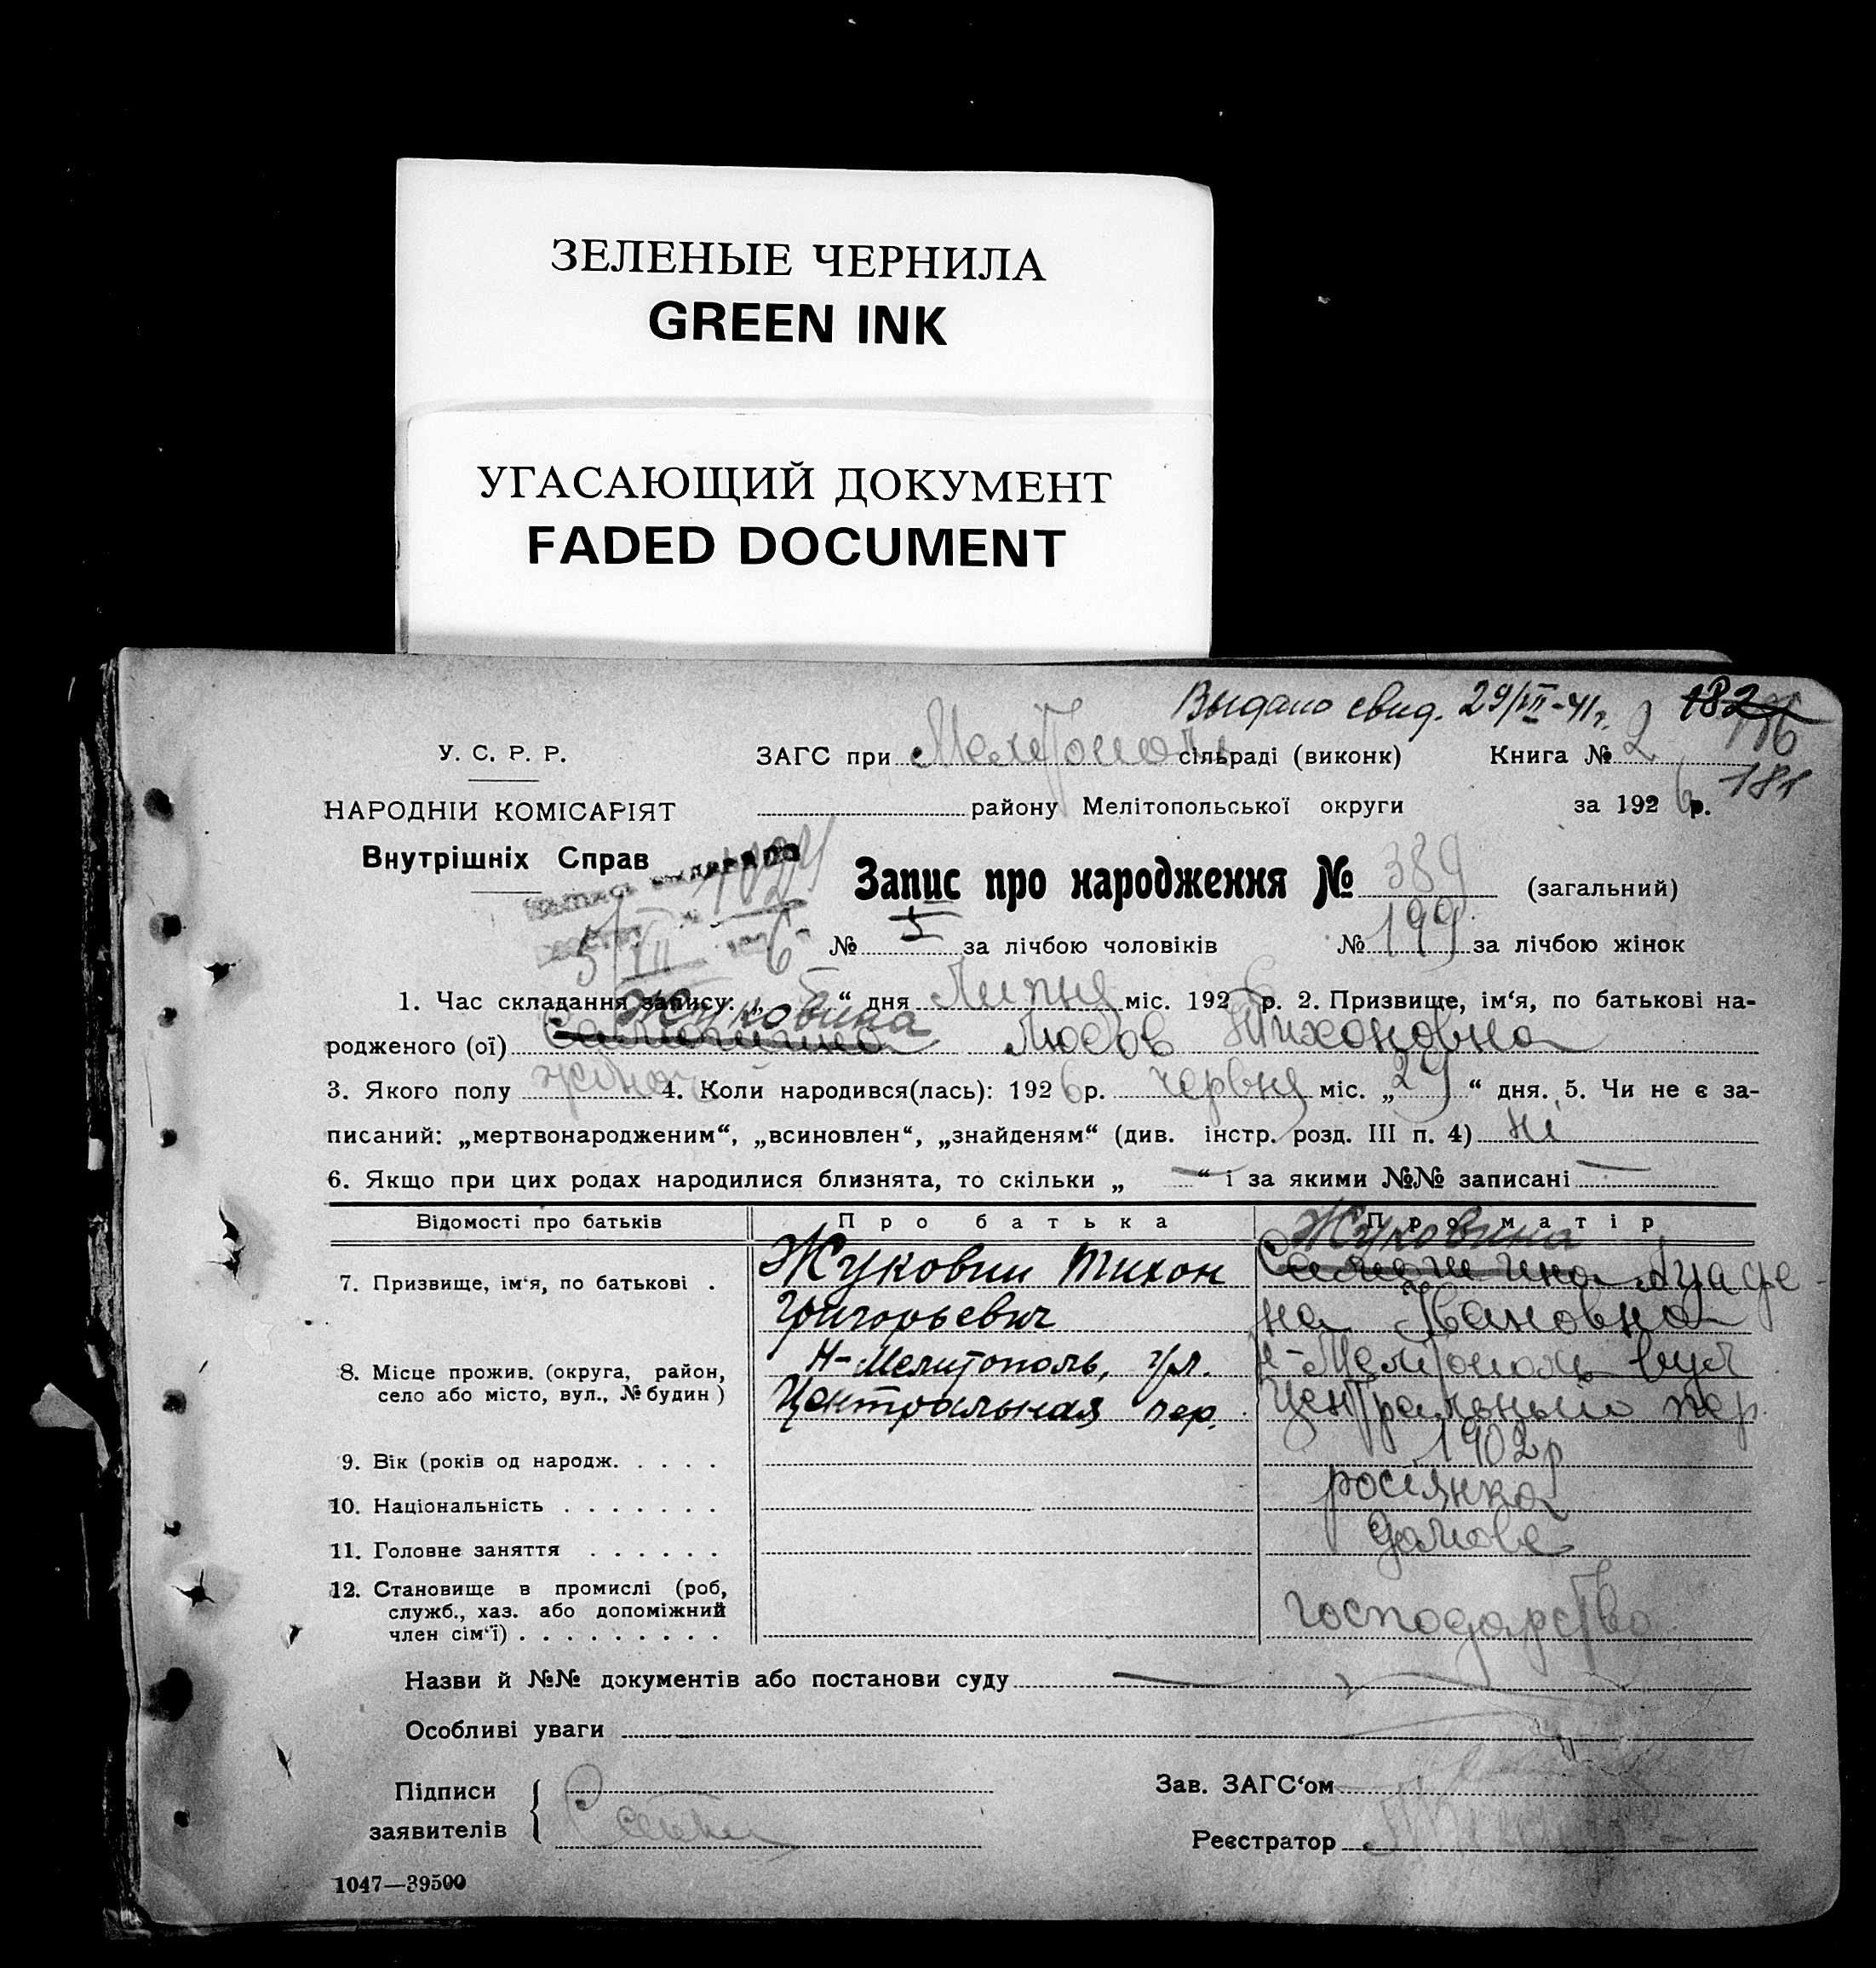 ЗЕЛЕНЫЕ ЧЕРНИЛА
GREEN INK
УГАСАЮЩИЙ ДОКУМЕНТ
FADED DOCUMENT
Выдано свид. 29/VII-41г. 182
У. С. Р. Р. ЗАГС при Мелітополь сільраді (виконк) Книга № 2
181
НАРОДНІЙ КОМІСАРІЯТ району Мелітопольської округи за 1926 р.
Внутрішніх Справ
Запис про народження № 389 (загальний)
5/VII 6
№ за лічбою чоловіків № 199 за лічбою жінок
1. Час складання запису: „5“ дня Липня міс. 1926 р. 2. Призвище, ім‘я, по батькові на-
Жуковина
родженого (ої) Любов Тихоновна
3. Якого полу жіноч 4. Коли народився(лась): 1926 р. червня міс. „29“ дня. 5. Чи не є за-
писаний: „мертвонародженим“, „всиновлен“, „знайденям“ (див. інстр. розд. III п. 4) Ні
6. Якщо при цих родах народилися близнята, то скільки „—“ і за якими №№ записані —
Відомості про батьків Про батька Про матір
Жуковина
7. Призвище, ім‘я, по батькові . Жуковин Тихон Агафе-
Григорьевич на Івановна
8. Місце прожив. (округа, район, село або місто, вул., № будин) Н-Мелитополь, ул. Н-Мелітополь вул
Центральная пер. Центральный пер.
9. Вік (років од народж. . . . . 1902р
10. Національність . . . . . . . росіянка
11. Головне заняття . . . . . . домове
12. Становище в промислі (роб,
служб., хаз. або допоміжний
член сім‘ї) . . . . . . . . . господарство
Назви й №№ документів або постанови суду —
Особливі уваги
Підписи Зав. ЗАГС‘ом
заявителів Реєстратор
1047—39500